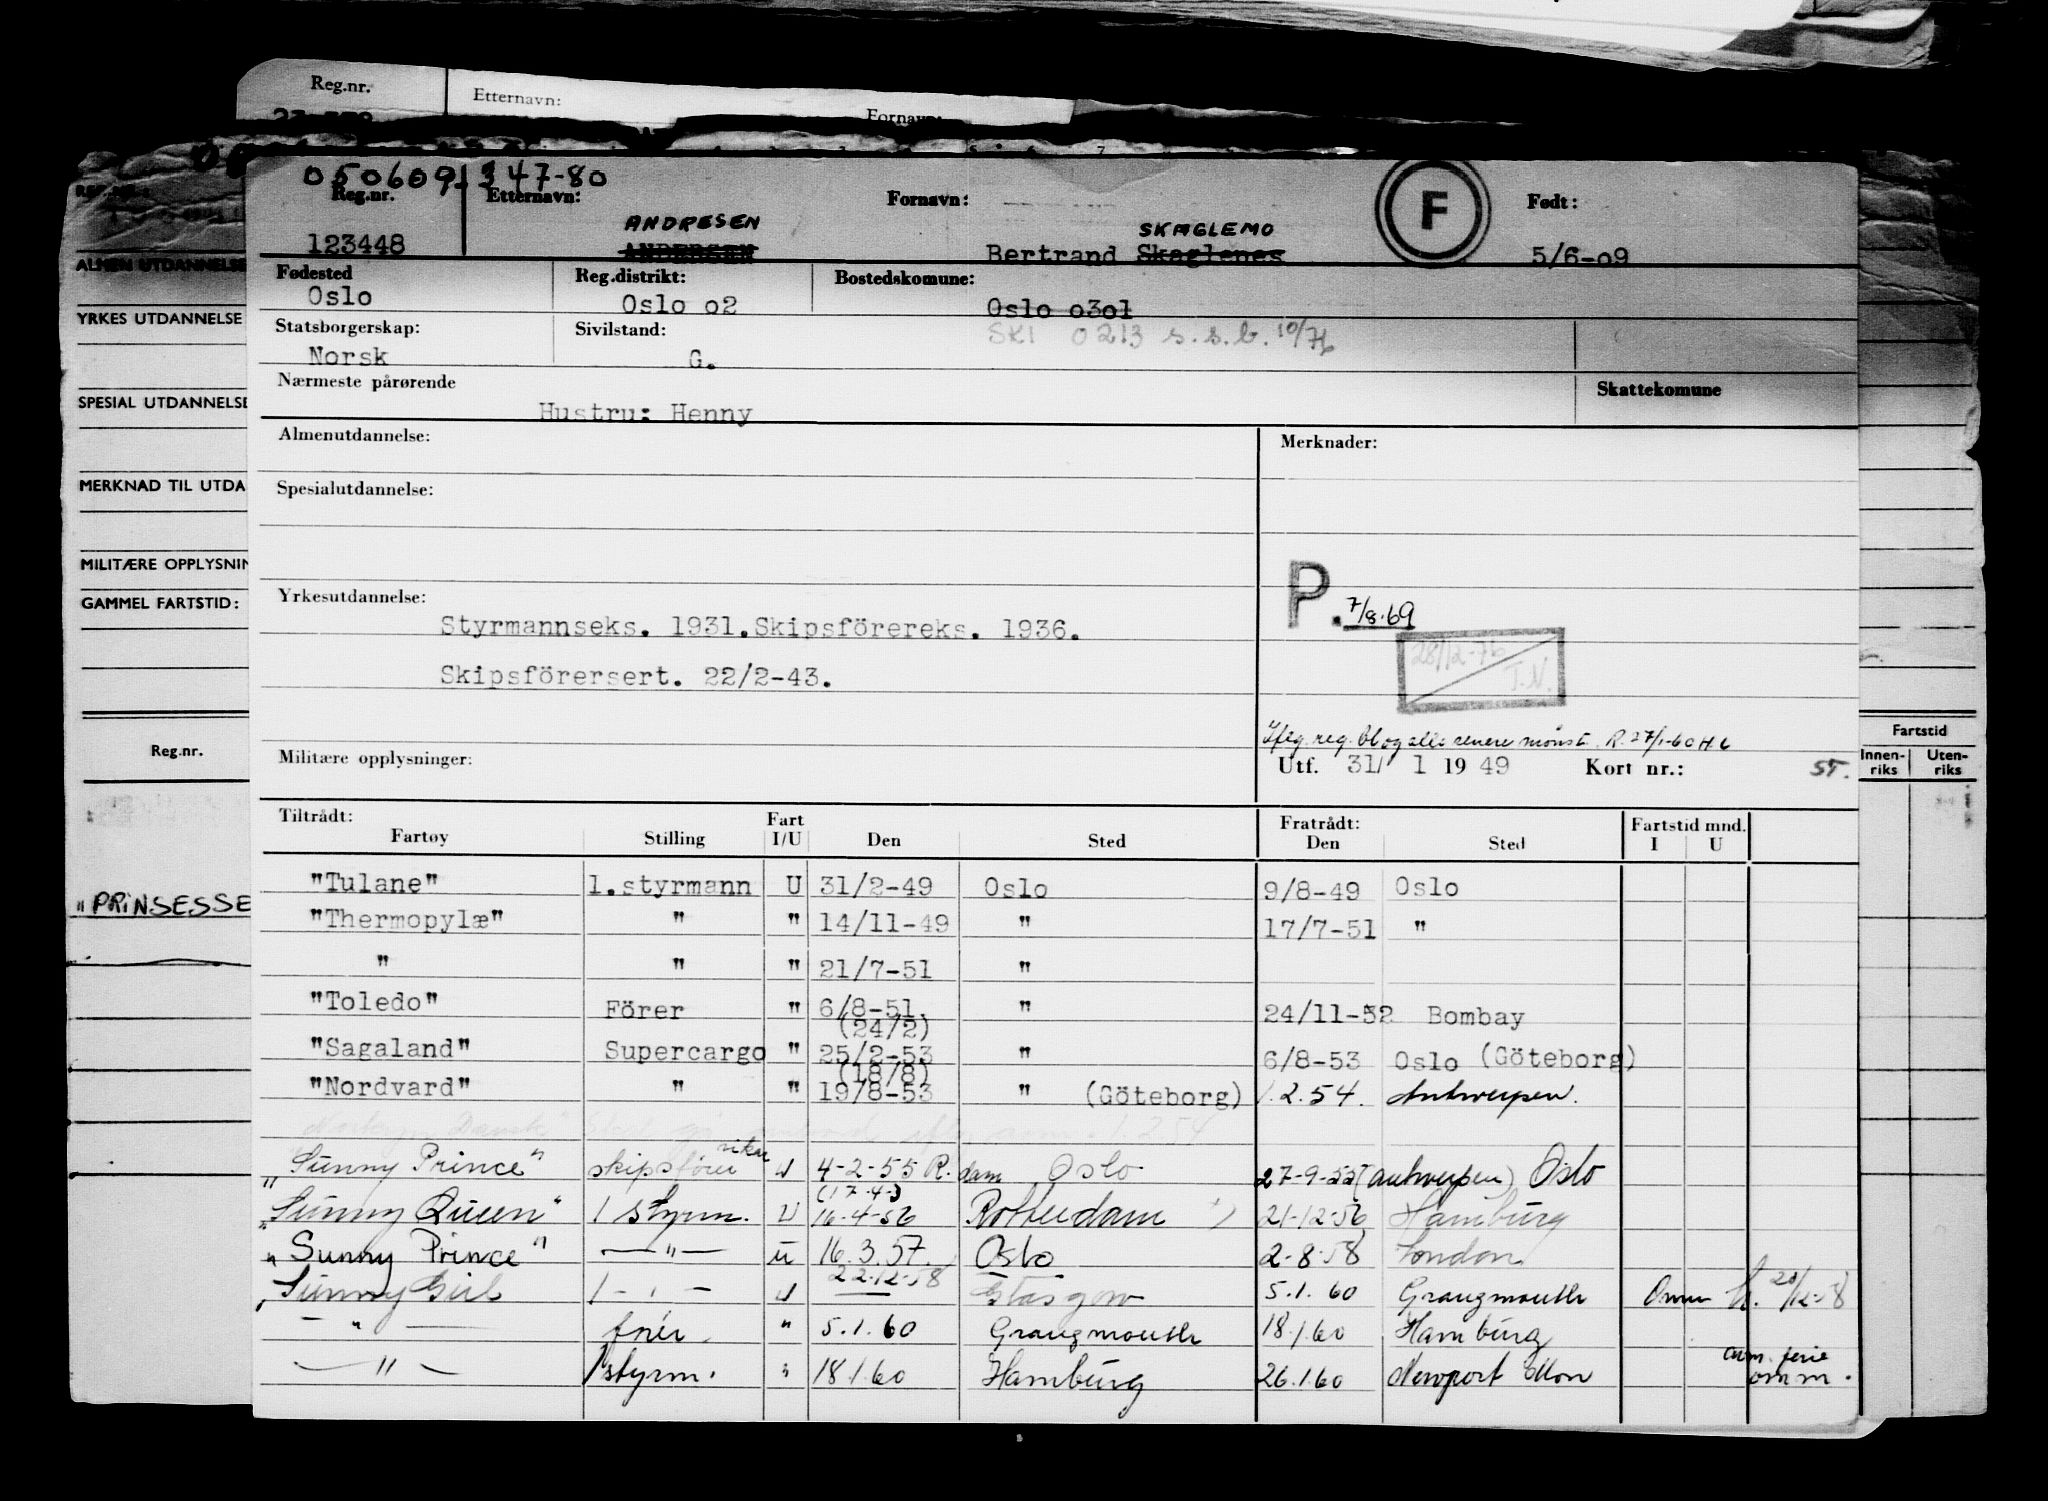 Reg.nr. Etternavn: Fornavn:
050609 347-80
Reg.nr. Etternavn: Fornavn: F Født:
ANDRESEN SKAGLEMO
123448 ANDERSEN Bertrand Skaglenes 5/6-o9
Fødested Reg.distrikt: Bostedskomune:
Oslo Oslo o2 Oslo o3o1
Statsborgerskap: Sivilstand: SKI 0213 s.s.b. 10/76
Norsk G.
Nærmeste pårørende Skattekomune
Hustru: Henny
Almenutdannelse: Merknader:
Spesialutdannelse:
Yrkesutdannelse: P. 7/8.69
Styrmannseks. 1931.Skipsförereks. 1936.
28/12-76 T.N.
Skipsförersert. 22/2-43.
Iflg. reg. bl og alle senere mønst. R. 27/1-60 H.L
Militære opplysninger: Utf. 31/ 1 19 49 Kort nr.: ST.
Tiltrådt: Fart Fratrådt: Fartstid mnd.
Fartøy Stilling I/U Den Sted Den Sted I U
"Tulane" 1.styrmann U 31/2-49 Oslo 9/8-49 Oslo
"Thermopylæ" " " 14/11-49 " 17/7-51 "
" " " 21/7-51 "
"Toledo" Förer " 6/8-51 " 24/11-52 Bombay
(24/2)
"Sagaland" Supercargo " 25/2-53 " 6/8-53 Oslo (Göteborg)
(18/8)
"Nordvard" " " 19/8-53 " (Göteborg) 1.2.54. Antwerpen.
"Sunny Prince" skipsfører vikar U 4-2-55 R.dam Oslo 27-9-55 (Antwerpen) Oslo
(17-4-)
"Sunny Queen" 1 styrm. U 16-4-56 Rotterdam 21-12-56 Hamburg
"Sunny Prince" — " — U 16.3.57. Oslo 2-8-58 London
"Sunny Girl 1 - " - U 22-12-58 Glasgow 5.1.60 Grangmouth 20/12-58
— " — fører " 5.1.60 Grangmouth 18.1.60 Hamburg
— " — 1 styrm. " 18.1.60 Hamburg 26.1.60 Newport Mon ferie
omm.
ALMEN UTDANNELSE
YRKES UTDANNELSE
SPESIAL UTDANNELSE
MERKNAD TIL UTDA
MILITÆRE OPPLYSNIN
GAMMEL FARTSTID:
Reg.nr.
"PRINSESSE
Fartstid
Innen-riks Uten-riks